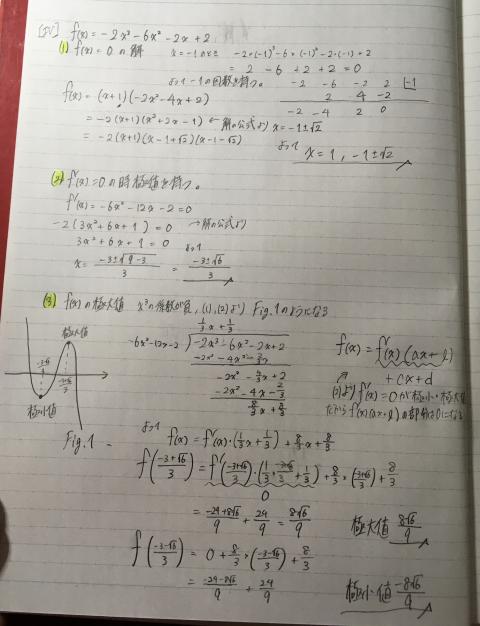 [IV] f(x) = -2x³-6x²-2x+2
(1) f(x)=0の解 x=-1のとき -2×(-1)³-6×(-1)²-2・(-1)+2
= 2 -6 +2 +2 = 0
よって-1の因数を持つ。 -2 -6 -2 2 |-1
2 4 -2
-2 -4 2 0
f(x) = (x+1)(-2x²-4x+2)
= -2(x+1)(x²+2x-1) ← 解の公式より x=-1±√2
= -2(x+1)(x-1+√2)(x-1-√2)
よって
x=1, -1±√2
(2) f'(x)=0の時極値を持つ。
f'(x)=-6x²-12x-2=0
-2(3x²+6x+1)=0 →解の公式より
3x²+6x+1=0 よって
x= (-3±√9-3)/3 = (-3±√6)/3
(3) f(x)の極大値 x³の係数が負, (1),(2)より Fig.1のようになる
極大値
極小値
Fig.1
1/3x+1/3
-6x²-12x-2 -2x³-6x²-2x+2
-2x³-4x²-2/3x
-2x²-4/3x+2
-2x²-4x-2/3
8/3x+8/3
f(x)=f'(x)(ax+b)
+cx+d
(2)よりf'(x)=0が極小・極大
だからf'(x)(ax+b)の部分は0になる
よって
f(x)=f'(x)・(1/3x+1/3)+8/3x+8/3
f((-3+√6)/3)=f'((-3+√6)/3)・(1/3・(-3+√6)/3+1/3)+8/3×((-3+√6)/3)+8/3
0
= (-24+8√6)/9 + 24/9 = 8√6/9
極大値 8√6/9
f((-3-√6)/3) = 0+8/3×((-3-√6)/3)+8/3
= (-24-8√6)/9 + 24/9
極小値 -8√6/9